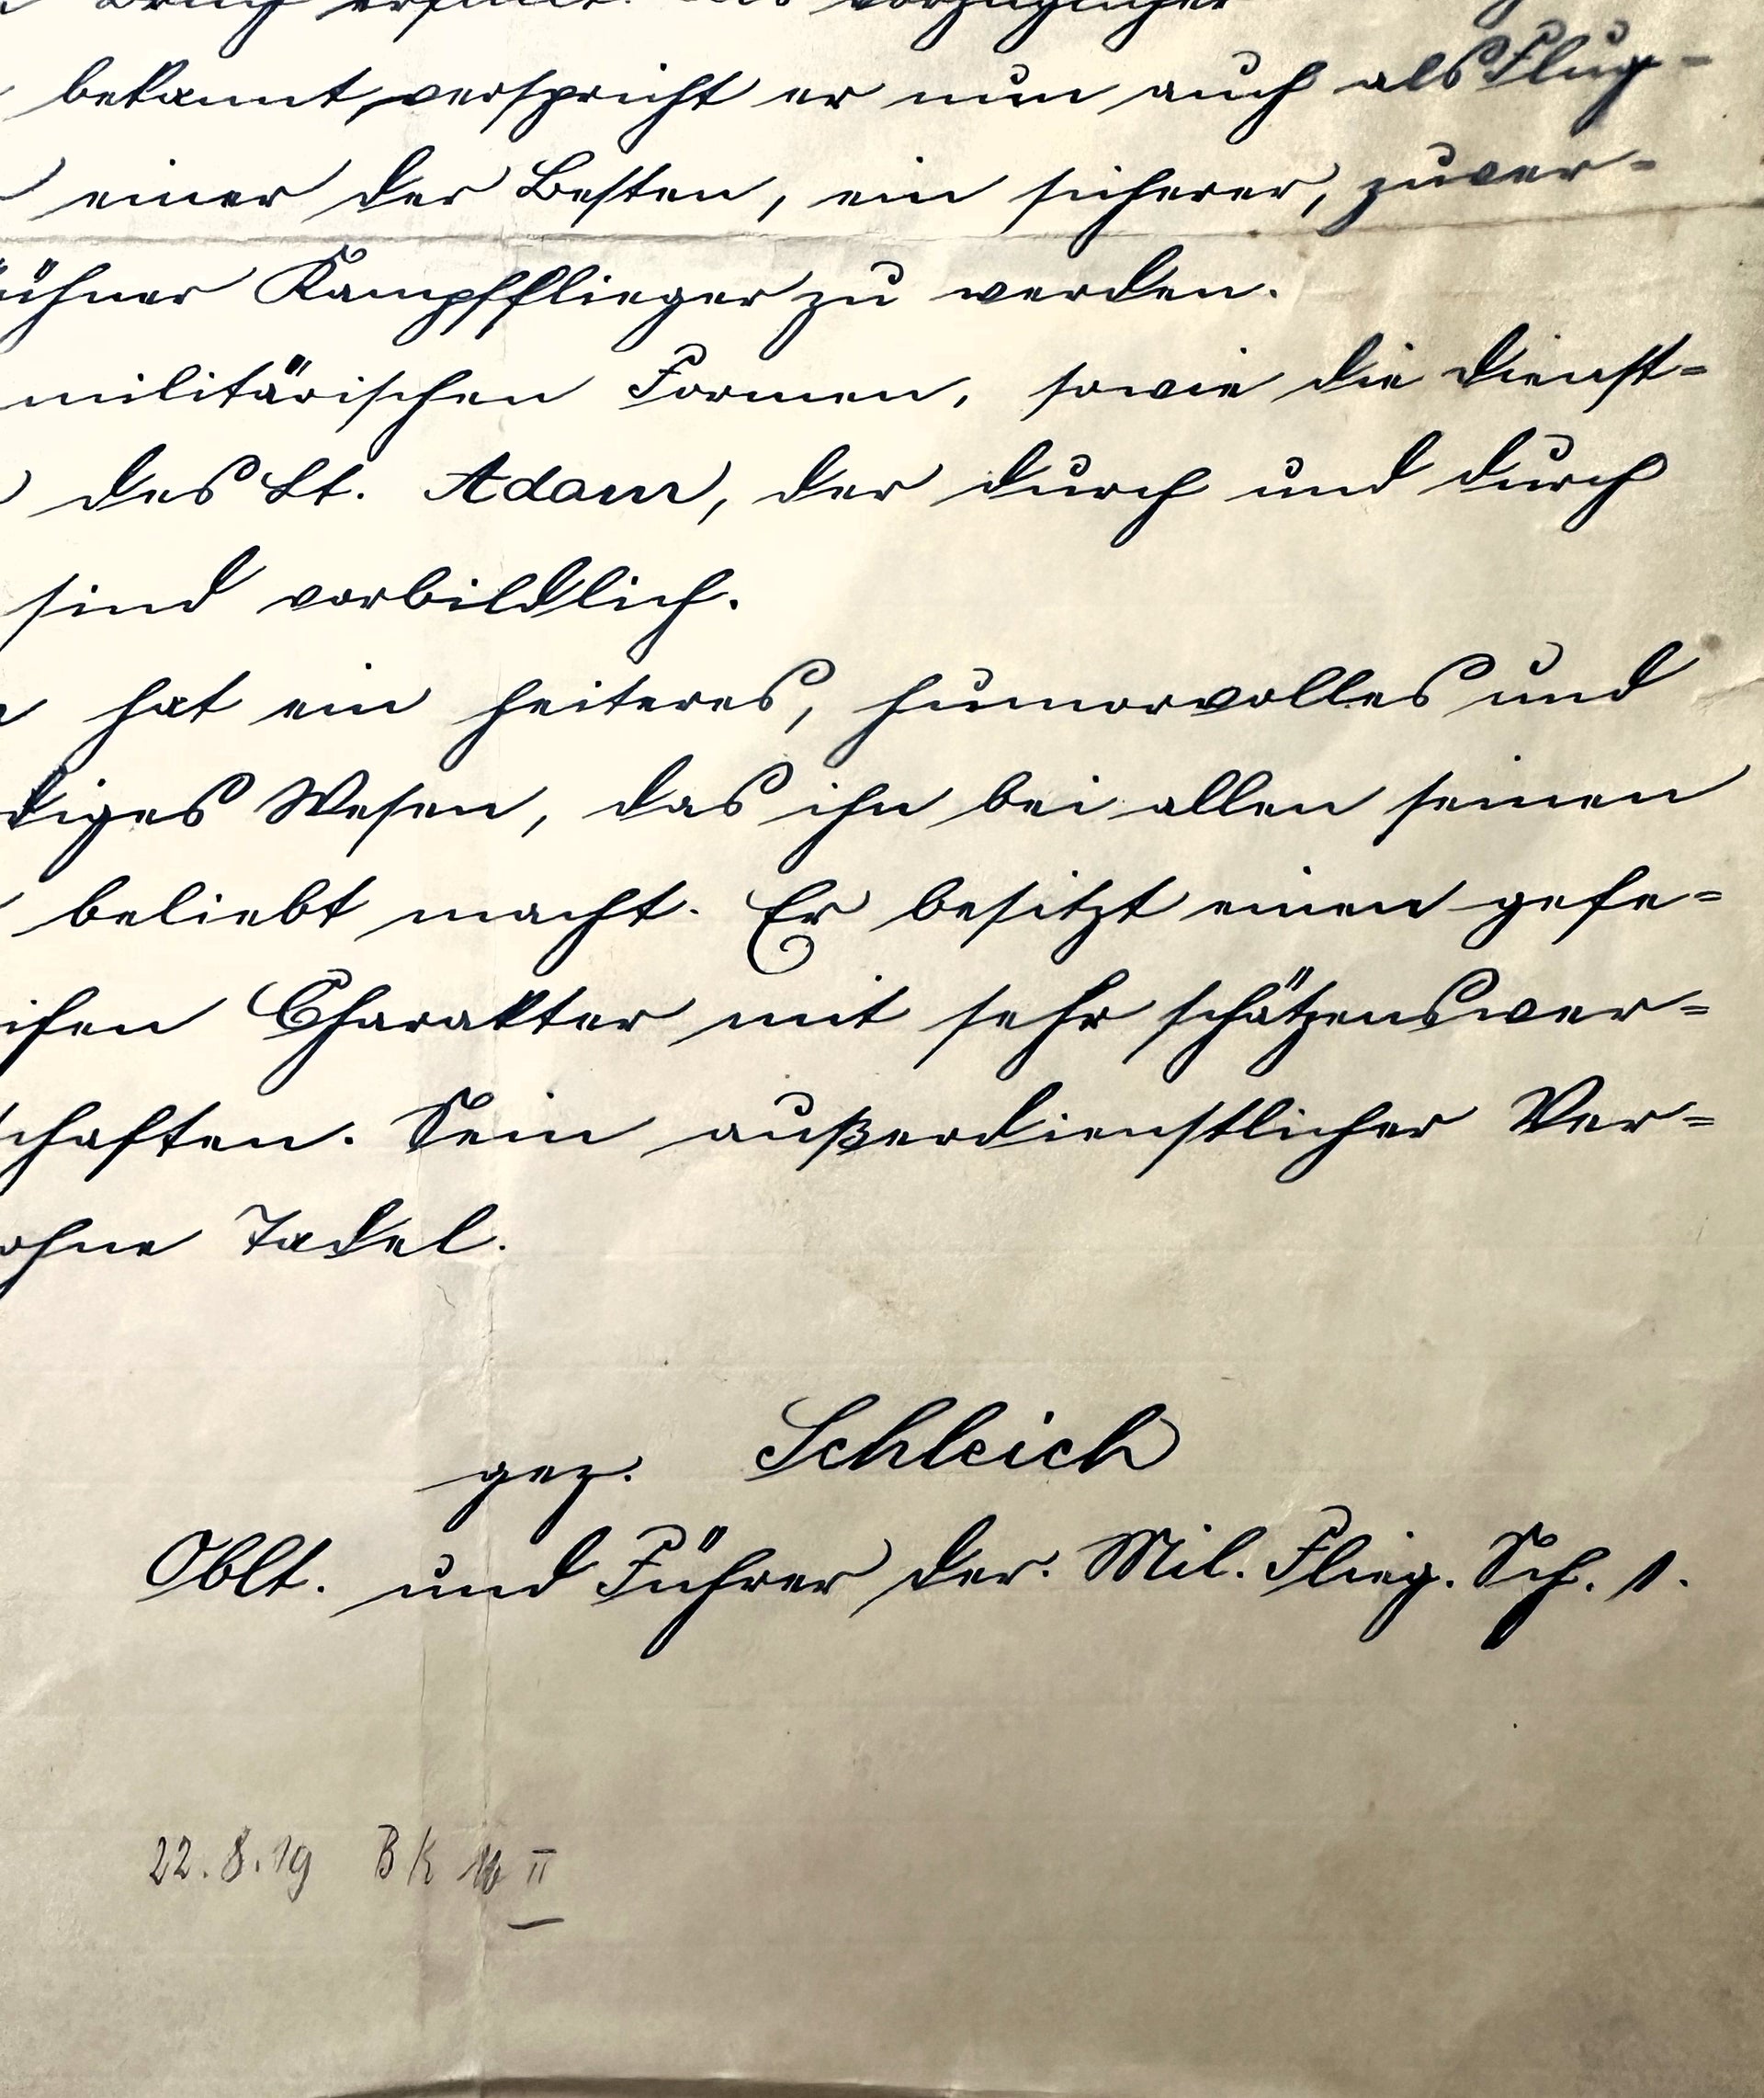 bekannt, verspricht er nun auch als Flug-
einer der Besten, ein sicherer, zuver-
kühner Kampfflieger zu werden.
militärischen Formen, sowie die dienst-
des Lt. Adam, der durch und durch
sind vorbildlich.
hat ein heiteres, humorvolles und
diges Wesen, das ihn bei allen seinen
beliebt macht. Er besitzt einen gefe-
ifen Charakter mit sehr schätzenswer-
schaften. Sein außerdienstlicher Ver-
ohne Tadel.
gez. Schleich
Oblt. und Führer der. Mil. Flieg. Sch. 1.
22.8.19 BK II